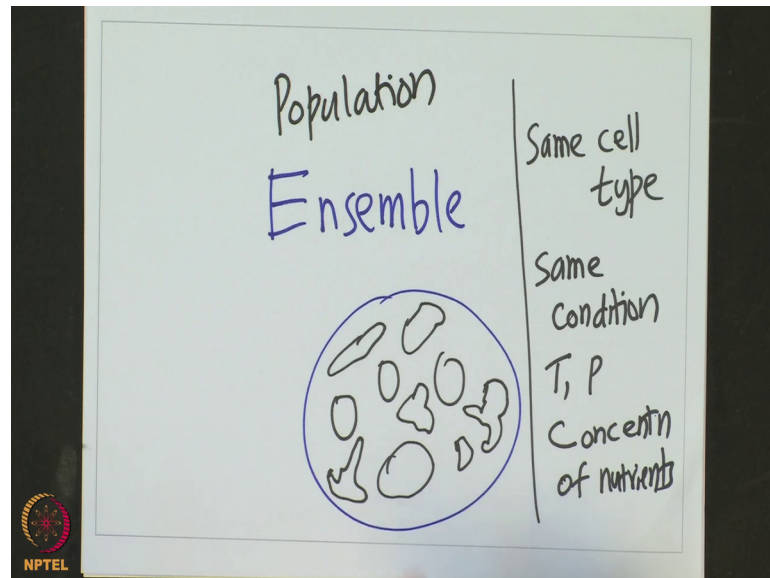 Population
Ensemble
Same cell
type
Same
Condition
T, P
Concentn
of nutrients
NPTEL